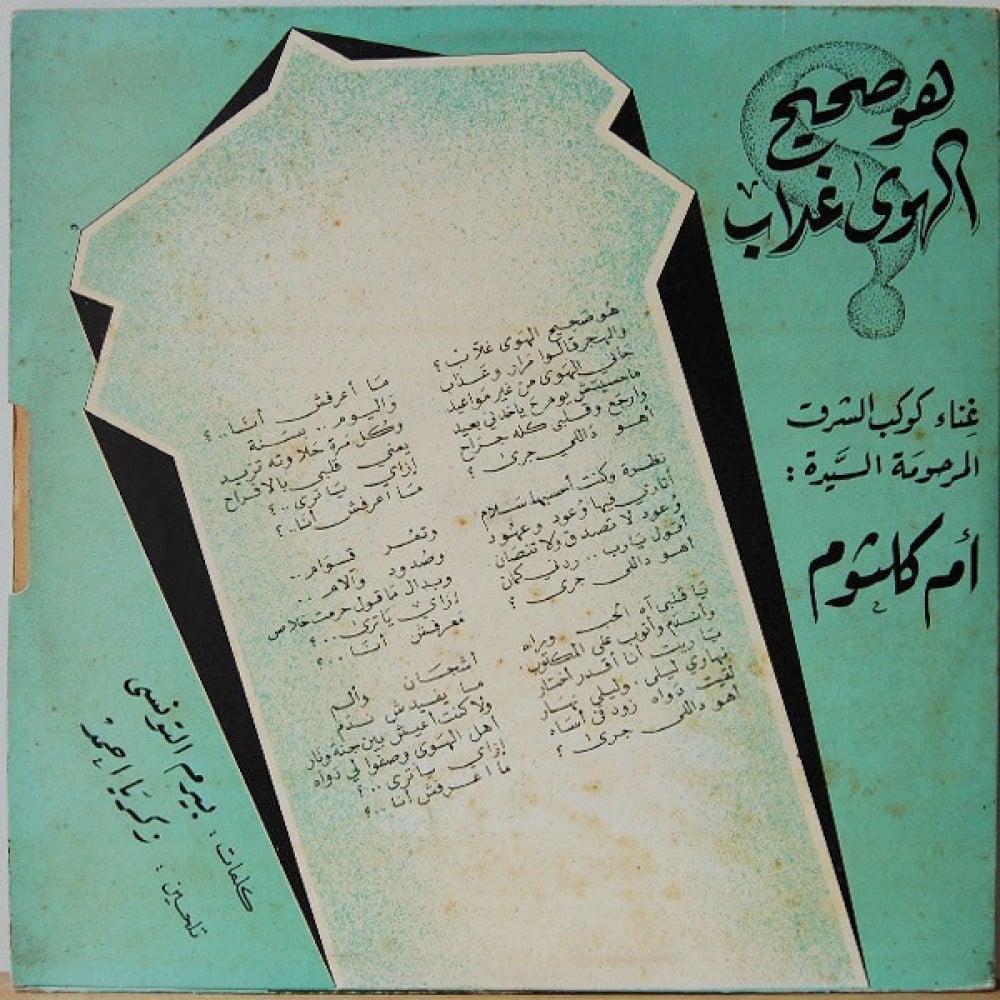 هو صحيح
الهوى غلاب
غناء كوكب الشرق
المرحومة السيدة :
أم كلثوم
هو صحيح الهوى غلاب ؟
والهجر قالوا مرار وعذاب
جاني الهوى من غير مواعيد
ما حسبتش يوم ح ياخدني بعيد
وارجع وقلبي كله جراح
أهو داللي جرى ؟
نظرة وكنت أحسبها سلام
أتاري فيها وعود وعهود
وعود لا تصدق ولا تنصان
أقول يارب .. ردني كمان
أهو داللي جرى ؟
يا قلبي آه الحب وراه
وأندم وأتوب على المكتوب
يا ريت أنا أقدر أختار
نهاري ليلي، وليلي نهار
لقيت دواه زود في أساه
أهو داللي جرى ؟
ما أعرفش أنا..؟
واليوم.. بسنة
وكل مرة حلاوته تزيد
يمني قلبي بالأفراح
إزاي يا ترى..؟
ما أعرفش أنا..؟
وتمر قوام..
وصدود وآلام..
وبدال ما قول حرمت خلاص
إزاي يا ترى..؟
معرفش أنا..؟
أشجان وألم
ما يفيدش ندم
ولا كنت أعيش بين جنة ونار
أهل الهوى وصفوا لي دواه
إزاي يا ترى..؟
ما أعرفش أنا..؟
كلمات : بيرم التونسي
تلحين : زكريا احمد